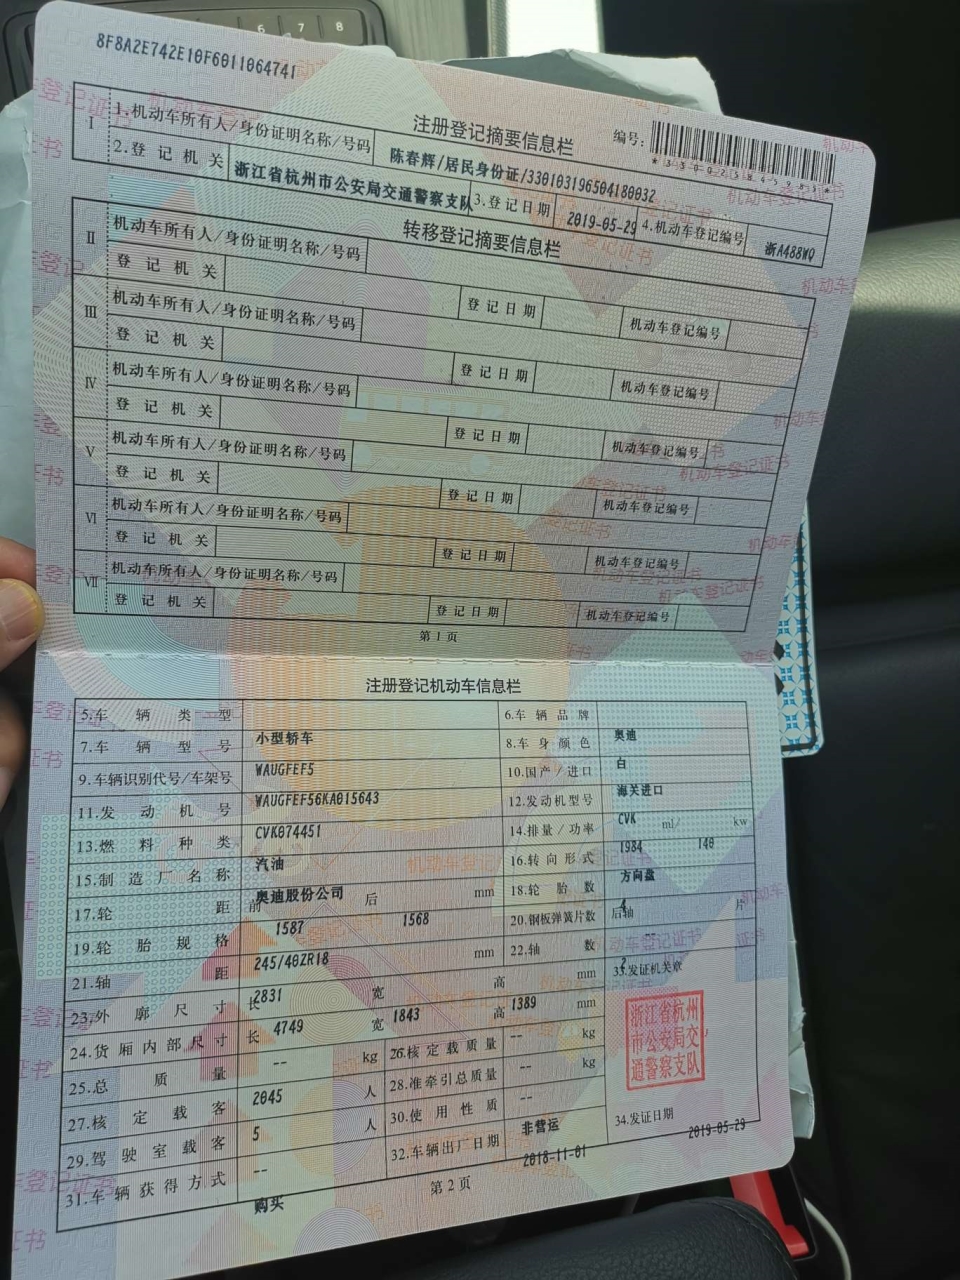 8F8A2E742E10F6011064741
注册登记摘要信息栏
编号:
Ⅰ
1.机动车所有人/身份证明名称/号码
陈春辉/居民身份证/330103196504180032
2.登记机关
浙江省杭州市公安局交通警察支队
3.登记日期
2019-05-29
4.机动车登记编号
浙A488WQ
转移登记摘要信息栏
Ⅱ
机动车所有人/身份证明名称/号码
登记机关
登记日期
机动车登记编号
Ⅲ
机动车所有人/身份证明名称/号码
登记机关
登记日期
机动车登记编号
Ⅳ
机动车所有人/身份证明名称/号码
登记机关
登记日期
机动车登记编号
Ⅴ
机动车所有人/身份证明名称/号码
登记机关
登记日期
机动车登记编号
Ⅵ
机动车所有人/身份证明名称/号码
登记机关
登记日期
机动车登记编号
Ⅶ
机动车所有人/身份证明名称/号码
登记机关
登记日期
机动车登记编号
第1页
注册登记机动车信息栏
5.车辆类型
小型轿车
6.车辆品牌
奥迪
7.车辆型号
WAUGFEF5
8.车身颜色
白
9.车辆识别代号/车架号
WAUGFEF56KA015643
10.国产/进口
海关进口
11.发动机号
CVK074451
12.发动机型号
CVK
13.燃料种类
汽油
14.排量/功率
1984 ml/ 140 kw
15.制造厂名称
奥迪股份公司
16.转向形式
方向盘
17.轮距
前 1587 后 1568 mm
18.轮胎数
4
19.轮胎规格
245/40ZR18
20.钢板弹簧片数
后轴 -- 片
21.轴距
2831 mm
22.轴数
2
23.外廓尺寸
长 4749 宽 1843 高 1389 mm
33.发证机关章
浙江省杭州
市公安局交
通警察支队
24.货厢内部尺寸
长 -- 宽 -- 高 -- mm
25.总质量
2045 kg
26.核定载质量
-- kg
27.核定载客
5 人
28.准牵引总质量
-- kg
29.驾驶室载客
-- 人
30.使用性质
非营运
34.发证日期
2019-05-29
31.车辆获得方式
购买
32.车辆出厂日期
2018-11-01
第2页